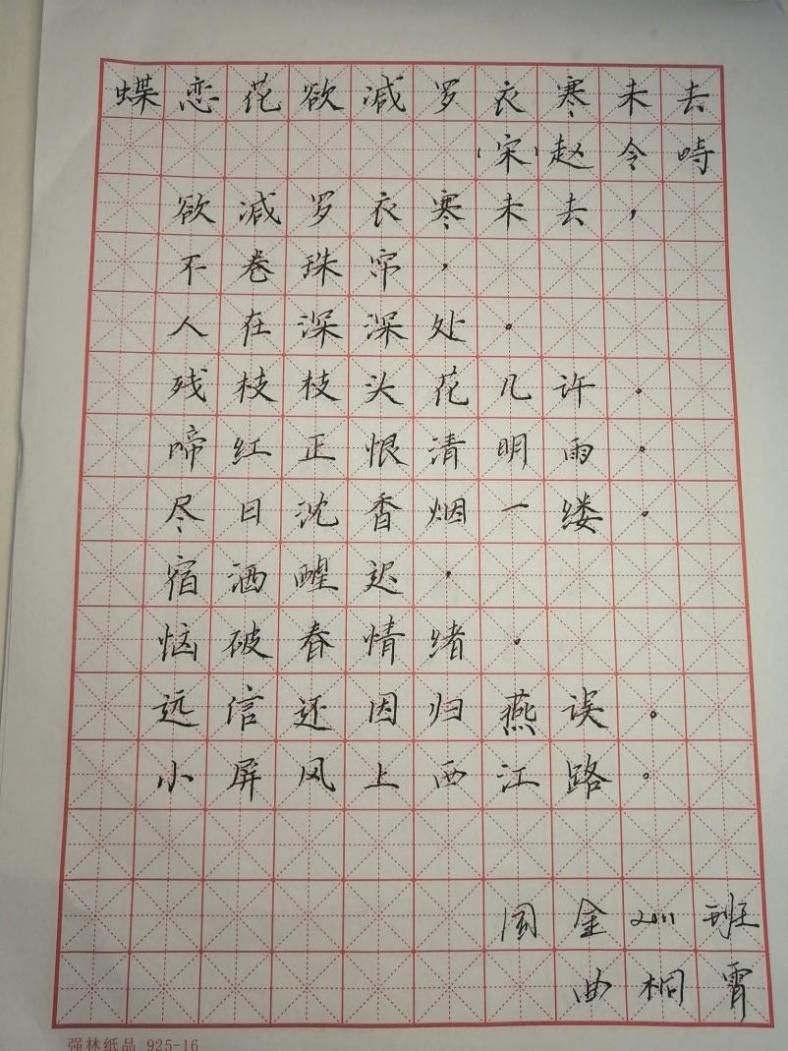 蝶恋花欲减罗衣寒未去
(宋)赵令畤
欲减罗衣寒未去，
不卷珠帘，
人在深深处。
残枝枝头花几许。
啼红正恨清明雨。
尽日沈香烟一缕。
宿酒醒迟，
恼破春情绪。
远信还因归燕误。
小屏风上西江路。
国金2011班
曲桐霄
强林纸品 925-16